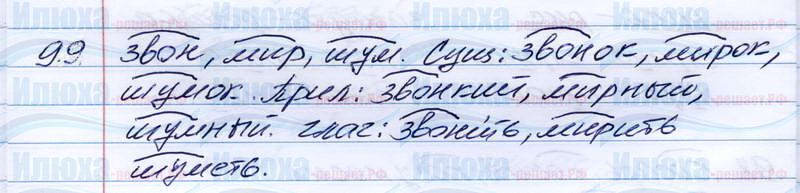 99. звон, мир, шум. Сущ: звонок, мирок,
шумок. Прил: звонкий, мирный,
шумный. глаг: звонить, мирить
шуметь.